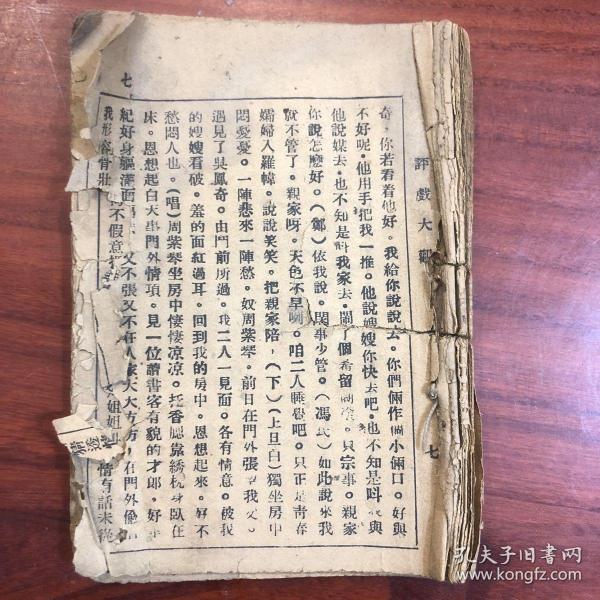 評戲大觀
七
奇。你若看着他好。我給你說說去。你們倆作個小倆口。好與
不好呢。他用手把我一推。他說嫂嫂你快去吧。也不知是叫我與
他說媒去。也不知是叫我家去。鬧了個希留糊塗。只宗事。親家
你說怎麽好。(鄭)依我說。閑事少管。(馮氏)如此說來我
就不管了。親家呀。天色不早咧。咱二人睡覺吧。只正是靑春
孀婦入羅幃。說說笑笑。把親家陪，(下)(上旦白)獨坐房中
悶憂憂。一陣悲來一陣愁。奴周紫琴。前日在門外張
遇見了吳鳳奇。由門前所過。我二人一見面。各有情意。被我
的嫂嫂看破。羞的面紅過耳。回到我的房中。恩想起來。好不
愁悶人也。(唱)周紫琴坐房中悽悽凉凉。托香腮靠綉枕身臥在
床。恩想起白天事門外情項。見一位讀書客有貌的才郎。好
紀好身軀滿面 又不張又不在人家大大方方，在門外偸
我形容骨壯 不假意 姐姐 情有話未從
七
孔夫子旧书网
www.kongfz.com